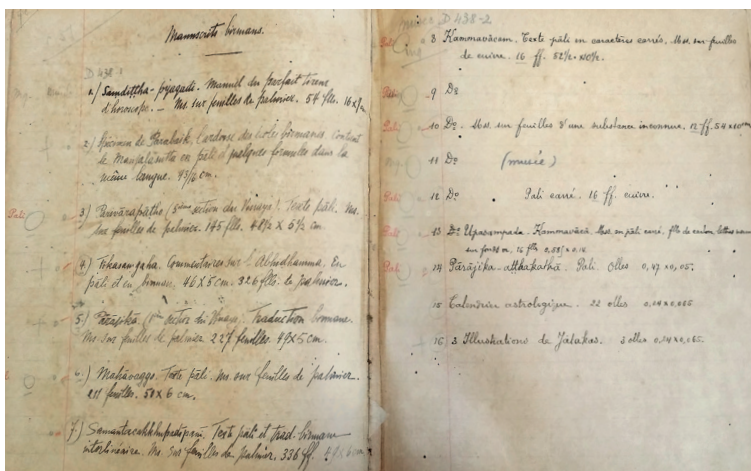 Manuscrits birmans.
D 438-1
1.) Samdittha-jòyagati. Manuel du parfait tireur
d'horoscope. — Ms. sur feuilles de palmier. 54 flls. 16 x
2.) Spécimen de Parabaik, l'ardoise des écoles birmanes. Contient
le Mangalasutta en pâli et quelques formules dans la
même langue. cm.
Pali 3) Parivārapātho (5ème section du Vinaya). Texte pâli. Ms.
sur feuilles de palmier. 145 flls. 48½ x 5½ cm.
4.) Ṭīkasaṃgaha. Commentaires sur l'Abhidhamma. En
pâli et en birman. 46 x 5 cm. 326 flls. de palmier.
5.) Pārājika (1ère section du Vinaya. Traduction birmane.
Ms. sur feuilles de palmier. 227 feuilles. 49 x 5 cm.
6.) Mahāvaggo. Texte pâli. Ms. sur feuilles de palmier.
211 feuilles. 50 x 6 cm.
7.) Texte pâli et trad. birmane
interlinéaire. Ms. sur feuilles de palmier. 336 ff.
D 438-2
Pali 8 Kammavācam. Texte pâli en caractères carrés. Mss. sur feuilles
de cuivre. 16 ff. 52½ x 10½.
Pali 9 Do
Pali 10 Do. Mss. sur feuilles d'une substance inconnue. 12 ff. 54 x 10
11 Do (musée)
Pali 12 Do Pali carré. 16 ff. cuivre.
Pali 13 Do Upasampada - Kammavācā. Mss. en pâli carré, flls de carton, lettres
sur fond 16 flls 0,55 x 0.10
Pali 14 Pārājika - atthakathā. Pali. Olles 0,47 x 0,05.
15 Calendrier astrologique. 22 olles 0.24 x 0.065
16 3 Illustrations de Jātakas. 3 olles 0,24 x 0,065.